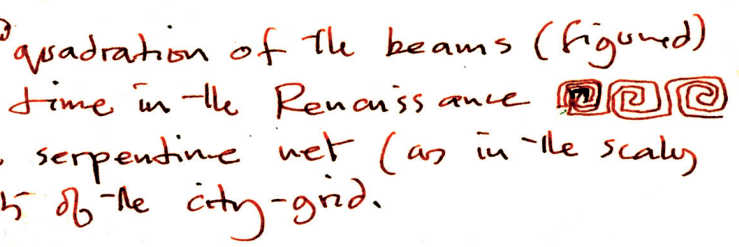 quadration of the beams (figured)
time in the Renaissance
serpentine net (as in the scales
of the city-grid.